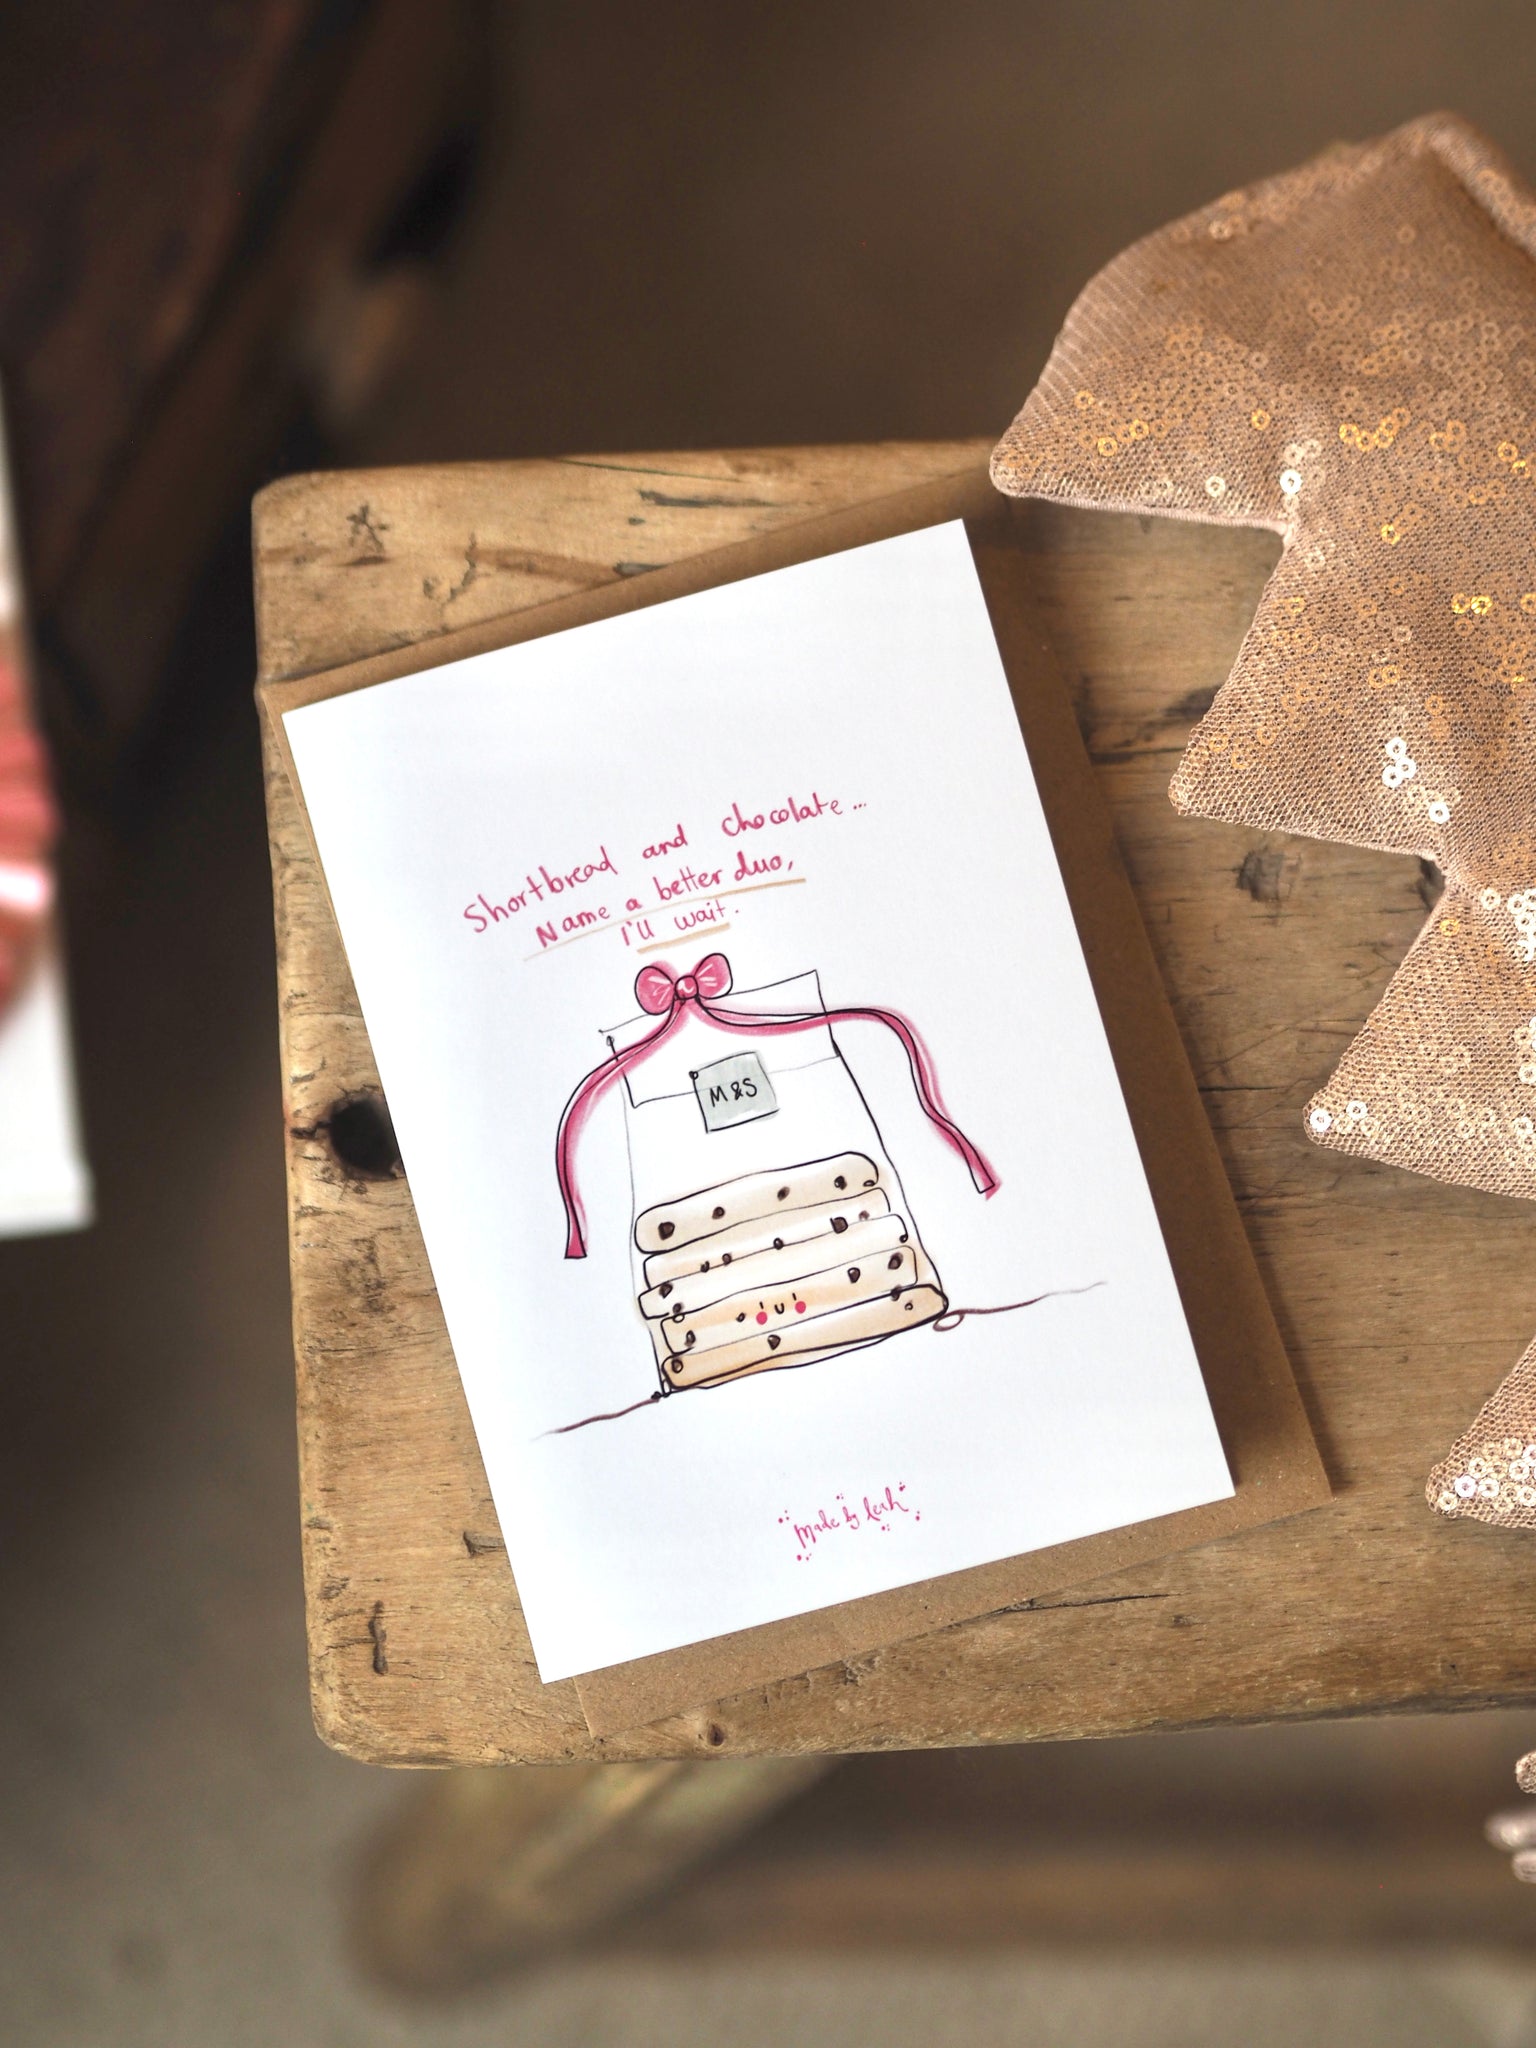 Shortbread and chocolate...
Name a better duo,
I'll wait.
M&S
Made by Leah